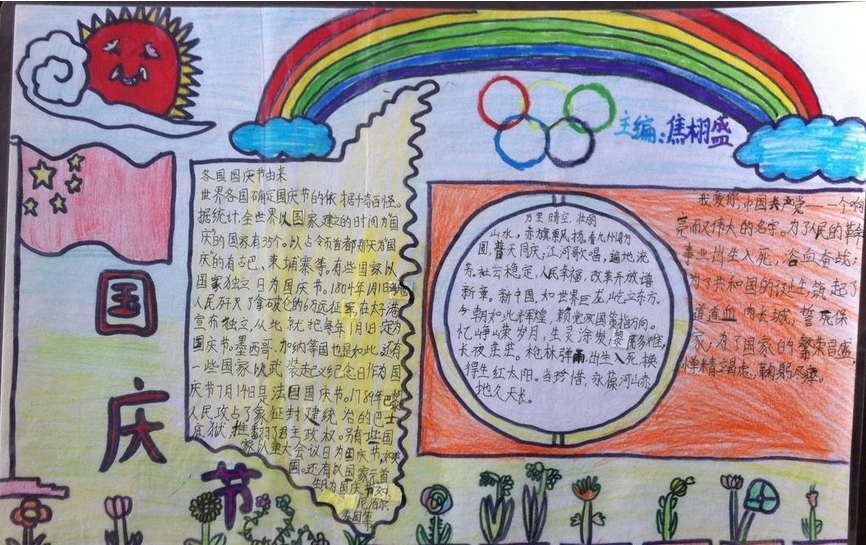 主编:焦栩盛
国
庆
节
各国国庆节由来
世界各国确定国庆节的依据千奇百怪。
据统计,全世界以国家建立的时间为国
庆的国家有35个。以占领首都那天为国
庆的有古巴、柬埔寨等。有些国家以
国家独立日为国庆节。1804年1月1日海地
人民歼灭了拿破仑的6万远征军,在太子港
宣布独立,从此就把每年1月1日定为
国庆节。墨西哥、加纳等国也是如此。还有
一些国家以武装起义纪念日作为国
庆节7月14日是法国国庆节。1789年巴黎
人民攻占了象征封建统治的巴士
底狱,推翻了君主政权。另有些国
家以重大会议日为国庆节,
国。还有以国家元首
生日为国庆节
尼泊尔
万里晴空,壮丽
山水。赤旗乘风扬,看九州为
圆,普天同庆;江河歌唱,遍地流
芳。社会稳定,人民幸福,改革开放谱
新章。新中国,如世界巨龙,屹立东方。
今朝如此辉煌,赖党双国策指方向。
忆峥嵘岁月,生灵涂炭,
长夜茫茫。枪林弹雨出生入死,换
得生红太阳。当珍惜,永葆河山赤
地久天长。
我爱你,中国共产党——一个响
亮而又伟大的名字。为了人民的革命
事业出生入死,浴血奋战;
为了共和国的诞生,筑起了
道道血肉长城,誓死保
家;为了国家的繁荣昌盛,
殚精竭虑,鞠躬尽瘁。